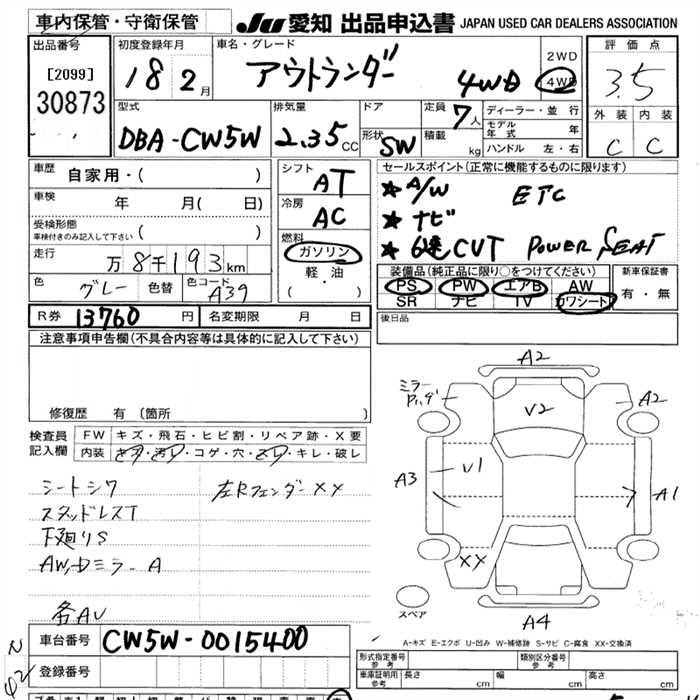 車内保管・守衛保管 JU 愛知 出品申込書 JAPAN USED CAR DEALERS ASSOCIATION
出品番号 初度登録年月 車名・グレード 2WD 評価点
[2099] 18 2月 アウトランダー 4WD 4WD 3.5
30873 型式 排気量 ドア 定員 7人 ディーラー・並行 外装 内装
モデル年式 年
DBA-CW5W 2.35CC 形状 SW 積載 kg ハンドル 左・右 C C
車歴 自家用・( ) シフト AT セールスポイント(正常に機能するものに限ります)
車検 年 月( 日) 冷房 AC ★ A/W ETC
受検形態 ★ ナビ
車検付きのみ記入して下さい ( ) 燃料 ★ 6速CVT POWER SEAT
走行 万8千193km ガソリン 装備品(純正品に限り○をつけてください) 新車保証書
色 グレー 色替 色コード A39 軽・油 PS PW エアB AW 有・無
( ・ ) SR ナビ TV カワシート
R券 13760円 名変期限 月 日 後日品
注意事項申告欄(不具合内容等は具体的に記入して下さい)
A2
ミラー
V2 A2
修復歴 有(箇所 )
検査員 FW キズ・飛石・ヒビ割・リペア跡・X要
記入欄 内装 キズ・汚レ・コゲ・穴・スレ・キレ・破レ
シートシワ 左Rフェンダー XX A3 V1 A1
スタッドレスT
下廻りS
AW,Dミラー A XX
スペア
各AU A4
車台番号 CW5W-0015400 A-キズ E-エクボ U-凹み W-補修跡 S-サビ C-腐食 XX-交換済
登録番号 形式指定番号 参考 類別区分番号 参考
車庫証明用 参考 長さ cm 幅 cm 高さ cm